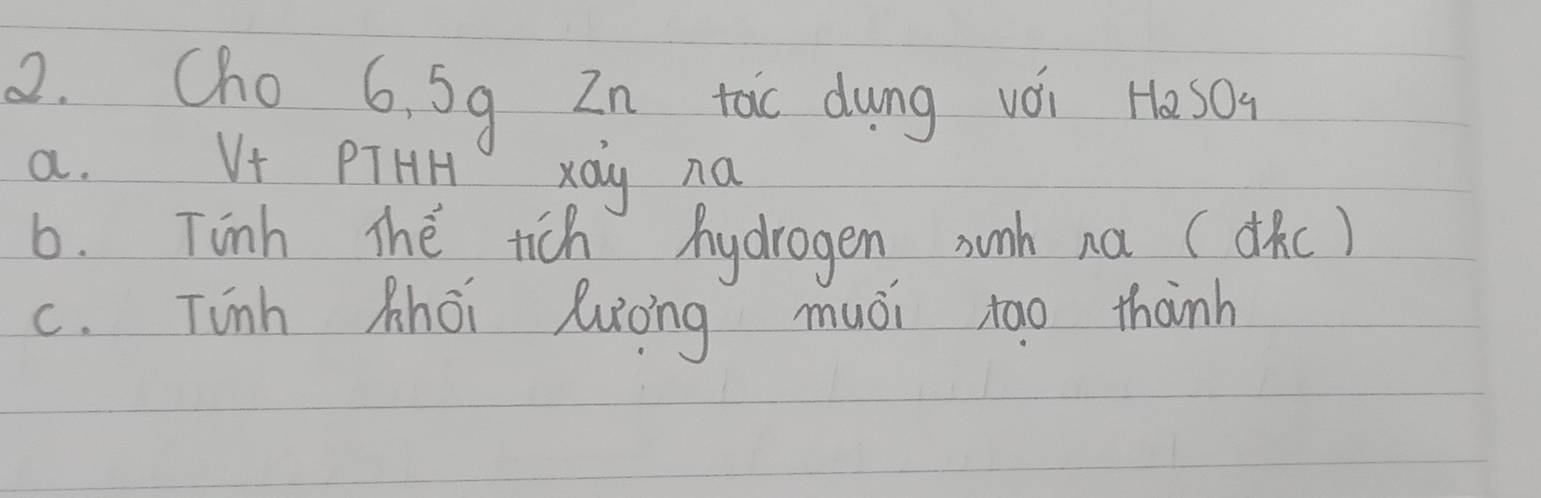 2. Cho 6,5g Zn tác dụng với H2SO4
a. Vt PTHH xảy ra
b. Tính thể tích hydrogen sinh ra (đkc)
c. Tính khối lượng muối tạo thành